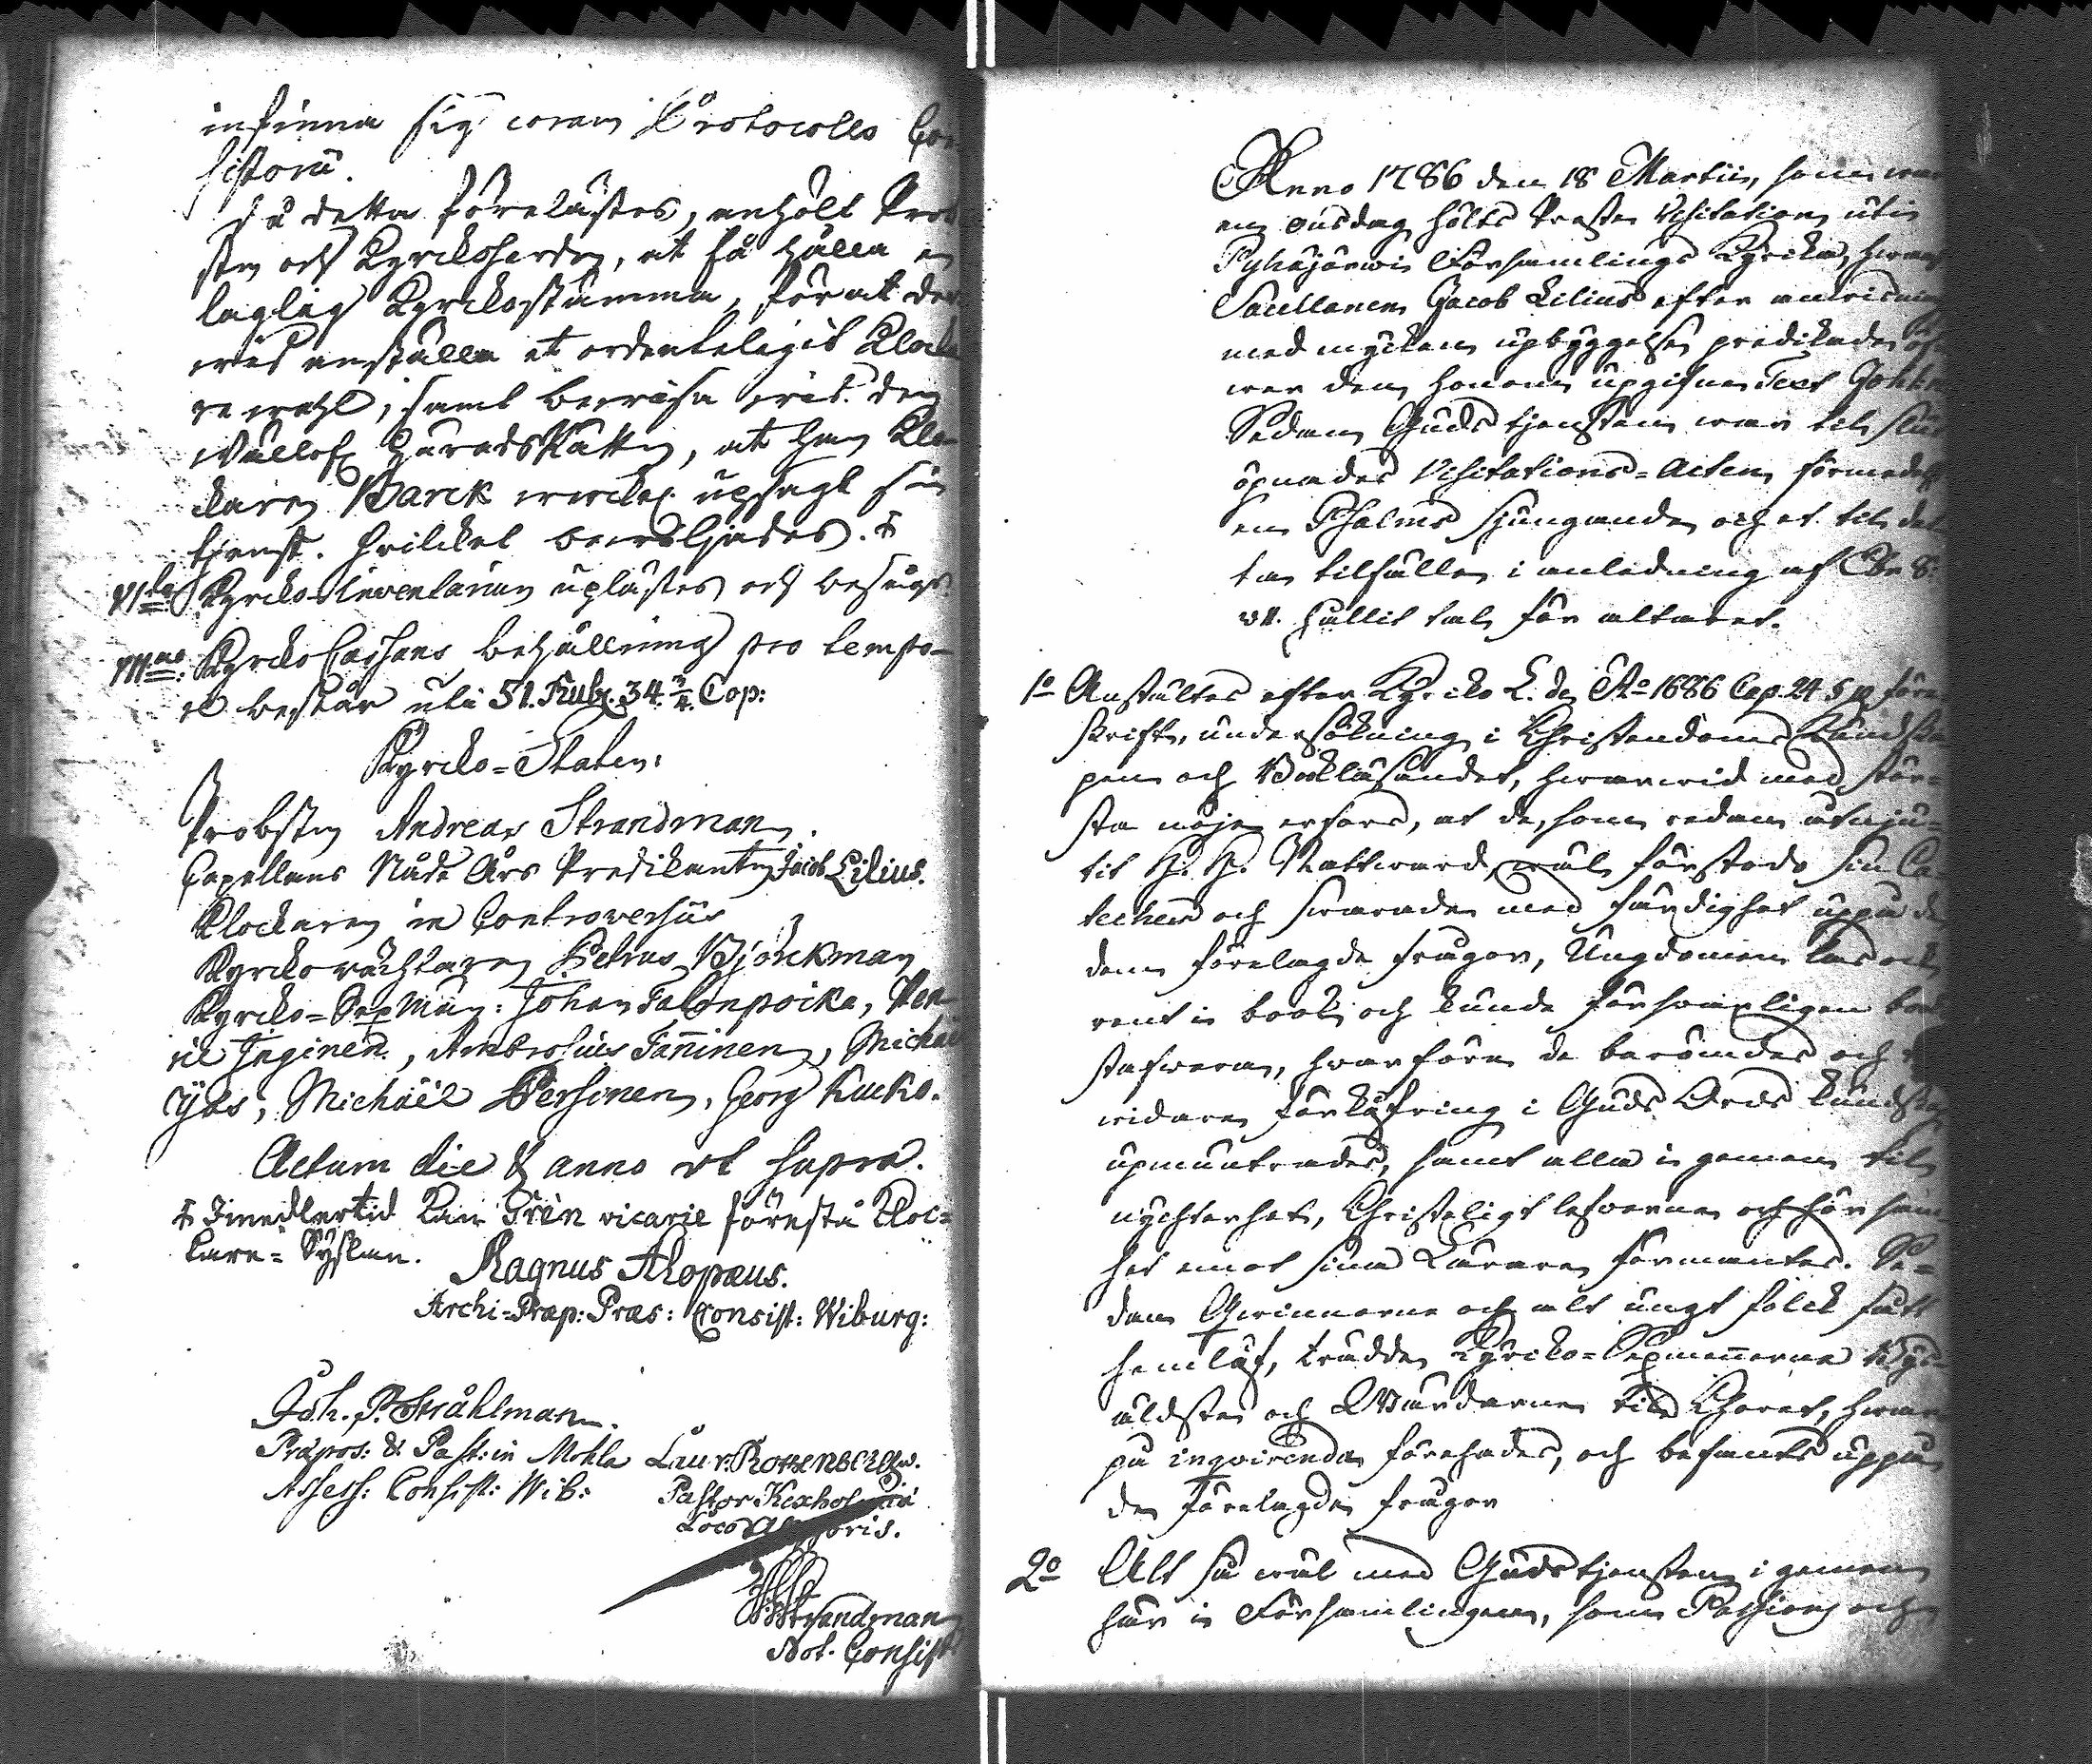 infinna sig coram Protocollo Con
sistorii.
Då detta föreläsets, anhölt Prob
sten och Kyrckoherden, at få hålla en
laglig Kyrckostämma, för at der
wid anställa et ordenteligit Klocka
re wahl, samt bewisa wid den
Wällofl. HäradsRätten, at han Kloc
karen Barck wercke. upsagt sin
tjenst. hwilcket bewiljades. ⸸
VI:to Kyrcko Inventarium uplästes och besågs.
VII:mo Kyrcko Cassans behållning pro tempo-
re består uti 51. Rubl. 34. 3/4. Cop:
Kyrcko-Staten:
Probsten Andreas Strandman.
Capellans Nåde Års Predikanten Jacob Lilius.
Klockaren in Controversiis
Kyrckowächtaren Petrus Björckman
Kyrcko-Sexmän: Johan Talonpoika, Hen
ric Inginen, Ambrosius Tanninen, Michel
Yös, Michaël Persinen, Georg Kucko.
Actum die & anno ut supra.
⸸ Imedlertid kan Grén vicarie förestå Kloc=
kare=Sysslan.
Magnus Alopæus.
Archi=Præp: Præs: Consist: Wiburg:
Joh. P. Stråhlman.
Præpos: & Past: in Mohla
Assess: Consist: Wib:
Laur: Rothenberg
Pastor Kexholmiæ
Loco Assessoris.
Strandman
Not. Consist
Anno 1786 den 18 Martii, som war
en onsdag hölts Proste Visitation uti
Pyhäjärwi Församlings Kyrcka, hwarest
Sacellanen Jacob Lilius efter anwisning
med mycken upbyggelse predikade öf
wer den honom upgifne Text
Sedan Gudstjensten war til slut
öpnades Visitations=Acten förmedelst
en Psalms sjungande och et til det
ta tilfälle i anledning af Ebr 8:
v 11. hållit tal för altaret.
1:o Anstältes efter Kyrcko L. de A:o 1686 Cap. 24 § 12 före
skrift, undersökning i Christendoms Kundska
pen och Bokläsandet, hwarwid med stör=
sta nöje erfors, at de, som redan åtnju=
tit H. H. Nattward, wäl förstodo sin Ca
teches och swarade med färdighet uppå de
dem förelagde frågor, Ungdomen läs och
rent i bok och kunde församligen bok
stafwera, hwarföre de berömdes och til
widare förkofring i Guds Ords kundskap
upmuntrades, samt alla i gemen til
nychterhet, Christeligt lefwerne och hörsam
het emot sina Lärare förmantes. Se=
dan Qwinnorne och alt ungt folck fått
hemlof, trädde Kyrcko=Sexmännerne By
äldste och Wärdarne til Choret, hwar
på inqvirendan förehades, och befants uppå
de förelagde frågor
2:o Alt så wäl med Gudstjensten i gemen
här i Församlingen, som Passions och